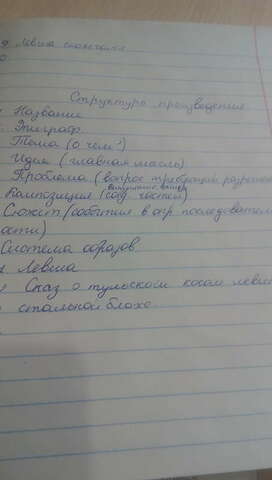 Левша
Структура произведения
Название
Эпиграф
Тема (о чем?)
Идея (главная мысль)
Проблема (вопрос требующий разрешен
Композиция (соод. частей)
Сюжет (события в опр последовательн
ости)
Система образов
Левша
Сказ о тульском косом левш
стальной блохе